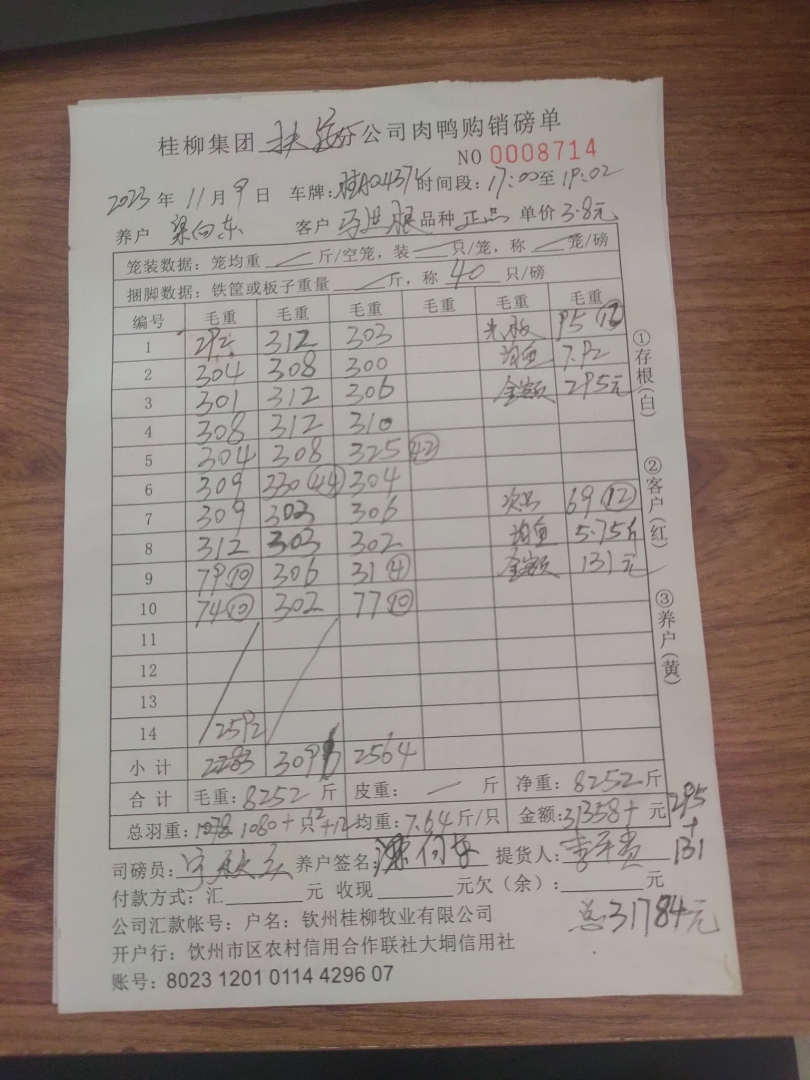 桂柳集团 扶绥分公司肉鸭购销磅单
NO 0008714
2023 年 11 月 9 日 车牌: 时间段: 17:00至19:02
养户 梁向东 客户 品种 正品 单价 3.8元
笼装数据: 笼均重 斤/空笼, 装 只/笼, 称 笼/磅
捆脚数据: 铁筐或板子重量 斤, 称 40 只/磅
编号 毛重 毛重 毛重 毛重 毛重 毛重
1 292 312 303 95
2 304 308 300 均重 7.92
3 301 312 306 金额 295元
4 308 312 310
5 304 308 325 (42)
6 309 330 (44) 304
7 309 303 306 次品 69 (12)
8 312 303 302 均重 5.75斤
9 79 (10) 306 31 (4) 金额 131元
10 74 (10) 302 77 (10)
11
12
13
14 2592
小计 309 2564
合计 毛重: 8252 斤 皮重: — 斤 净重: 8252 斤
总羽重: 1078 1080+ 只 均重: 7.64 斤/只 金额: 31358+ 元 295
+
131
司磅员: 养户签名: 提货人:
付款方式: 汇 元 收现 元欠(余): 元
总31784元
公司汇款帐号: 户名: 钦州桂柳牧业有限公司
开户行: 饮州市区农村信用合作联社大垌信用社
账号: 8023 1201 0114 4296 07
①存根(白)
②客户(红)
③养户(黄)